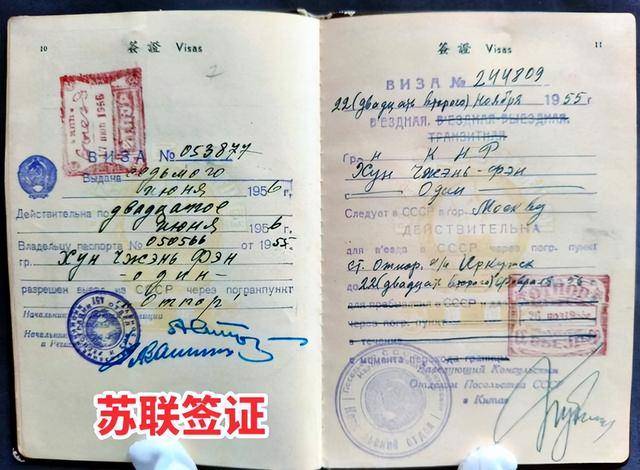 10
簽證 Visas
ВИЗА № 053877
Выдана седьмого
июня 1956 г,
Действительна по двадцатое
июня 1956 г,
Владельцу паспорта № 050566 от 1955
гр. Хун Чжэнь Фэн
- один -
разрешен выезд из СССР через погранпункт
Отпор
簽證 Visas 11
ВИЗА № 244809
22 (двадцать второго) ноября 1955 г.
В'ЕЗДНАЯ, В'ЕЗДНАЯ-ВЫЕЗДНАЯ,
ТРАНЗИТНАЯ
Гр-н КНР
Хун Чжэнь-фэн
Один
Следует в СССР в гор. Москву
ДЕЙСТВИТЕЛЬНА
для в'езда в СССР через погр. пункт
ст. Отпор, а/п Иркутск
до 22 (двадцать второго)
для пребывания в СССР и
через погр. пункт
в течение
с момента перехода границы
Заведующий Консульским
Отделом Посольства СССР
в Китае
苏联签证